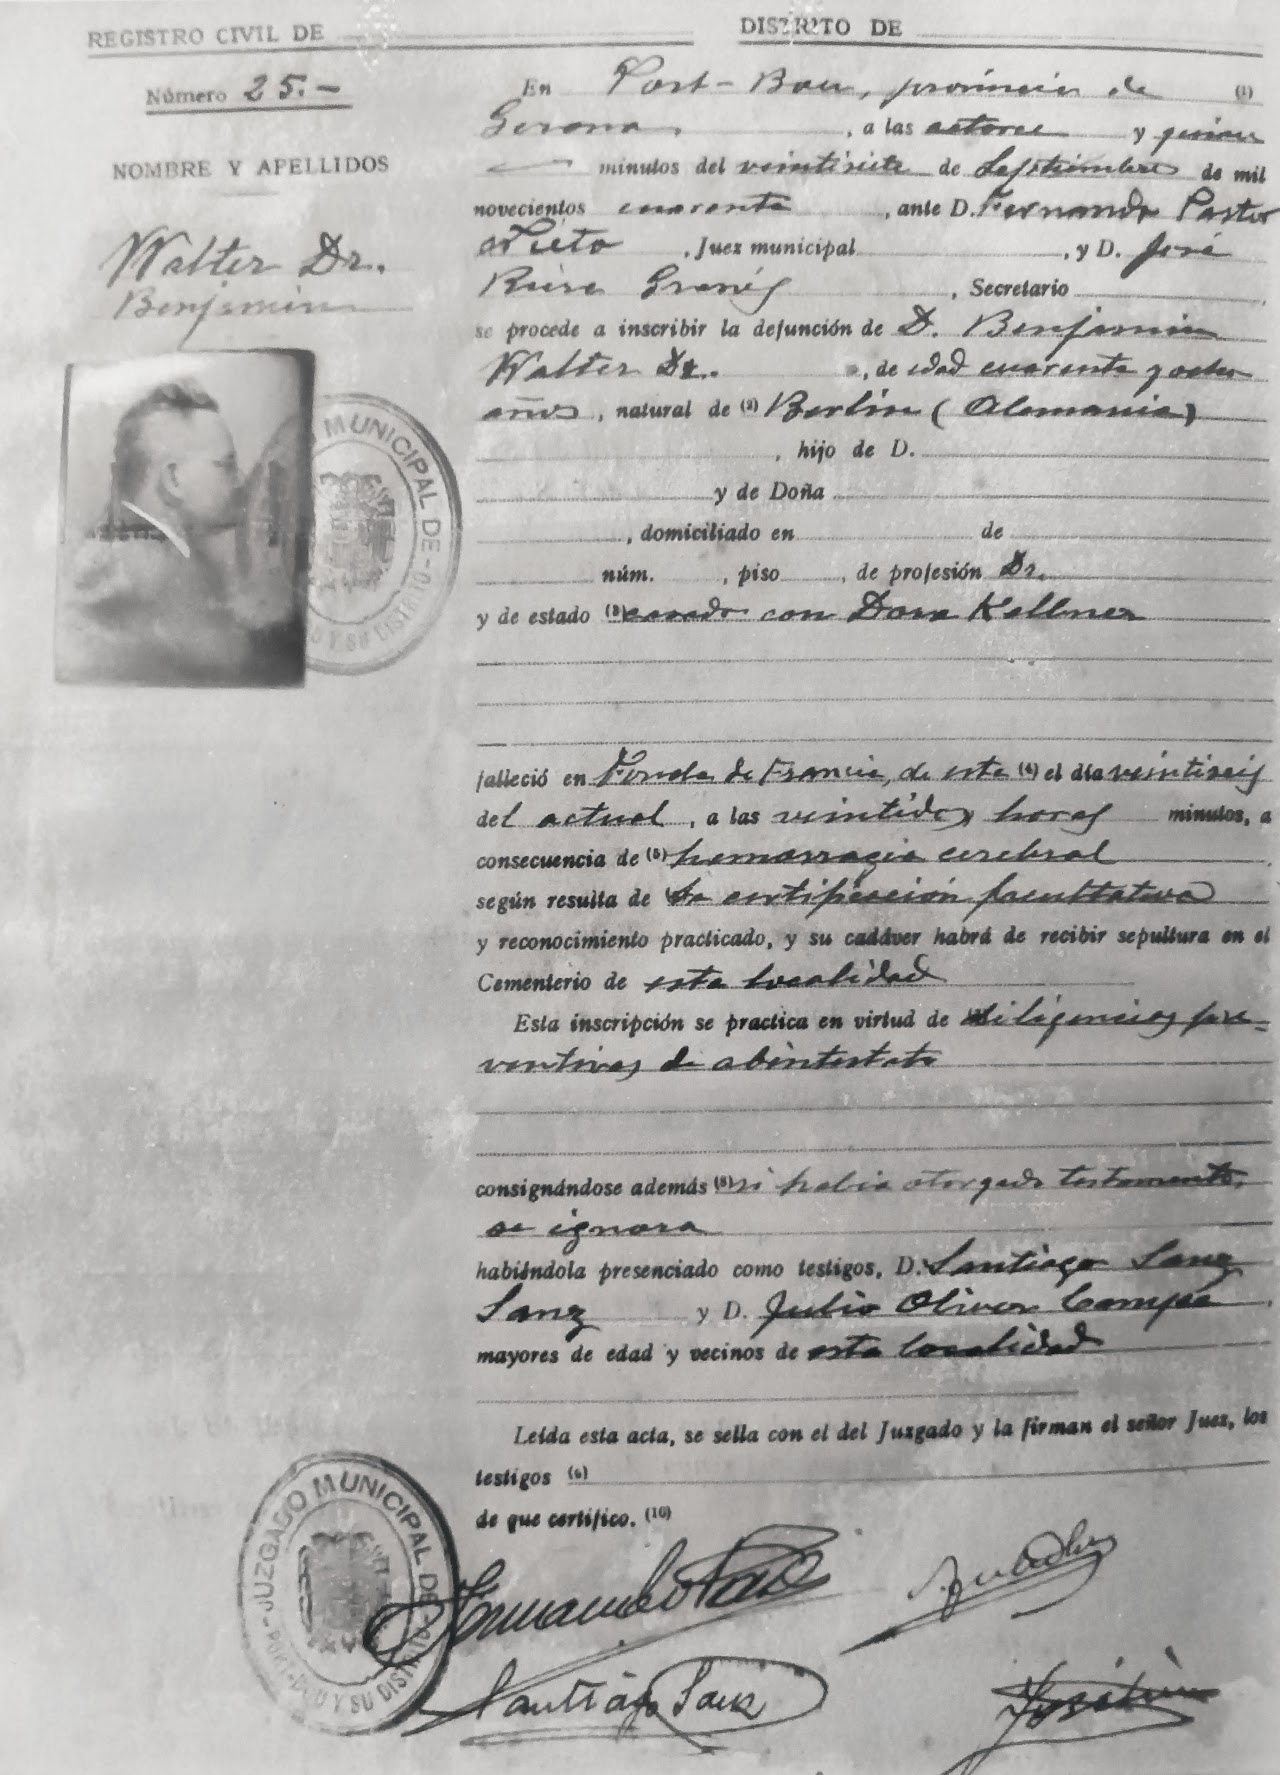 REGISTRO CIVIL DE
DISTRITO DE
Número 25.-
NOMBRE Y APELLIDOS
Walter Dr.
Benjamin
MUNICIPAL DE
Y SU DISTRITO
En Port-Bou, provincia de (1)
Gerona, , a las catorce y quince
minutos del veintisiete de Septiembre de mil
novecientos cuarenta , ante D. Fernando Pastor
Nieto , Juez municipal , y D. José
Riera Granés , Secretario
se procede a inscribir la defunción de D. Benjamin
Walter Dr. , de edad cuarenta y ocho
años , natural de (2) Berlin (Alemania)
, hijo de D.
y de Doña
, domiciliado en de
núm. , piso , de profesión Dr.
y de estado (3) casado con Dora Kellner
falleció en Fonda de Francia, de esta (4) el día veintiseis
del actual , a las veintidos horas minutos, a
consecuencia de (5) hemorragia cerebral
según resulta de la certificación facultativa
y reconocimiento practicado, y su cadáver habrá de recibir sepultura en el
Cementerio de esta localidad
Esta inscripción se practica en virtud de diligencias pre=
ventivas de abintestato
consignándose además (8) si habia otorgado testamento,
se ignora
habiéndola presenciado como testigos, D. Santiago Sanz
Sanz y D. Julio Oliver
mayores de edad y vecinos de esta localidad
Leída esta acta, se sella con el del Juzgado y la firman el señor Juez, los
testigos
de que certifico. (10)
JUZGADO MUNICIPAL DE
PORT-BOU Y SU DISTRITO
Fernando
Santiago Sanz